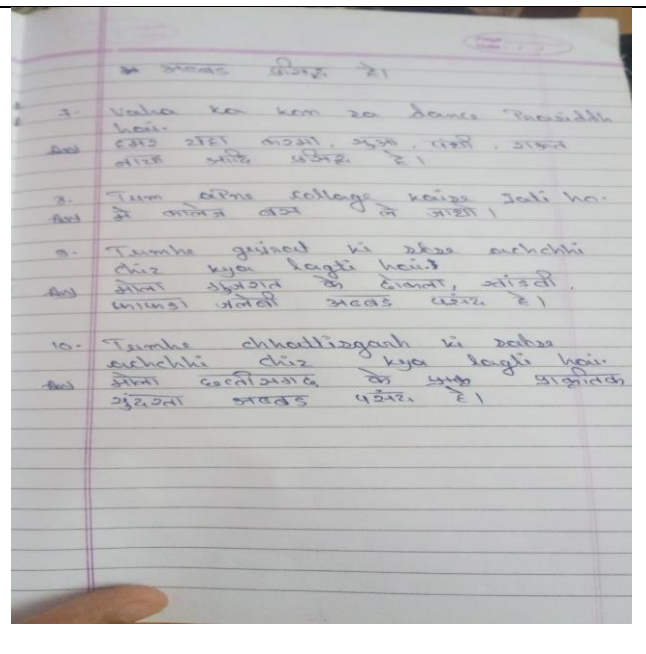 अब्बड़ प्रसिद्ध हे।
7. Vaha ka kon sa dance Prasiddh
hai.
Ans हमर यहा करमा, सुआ, पंथी, राऊत
नाचा आदि प्रसिद्ध हे।
8. Tum apne collage kaise Jati ho.
Ans मे कालेज बस ले जाथो।
9. Tumhe gujrat ki sbse achchhi
chiz kya lagti hai.
Ans मोला गुजरात के ढोकला, खांडवी,
फाफड़ा जलेबी अब्बड़ पसंद हे।
10. Tumhe chhattisgarh ki sabse
achchhi chiz kya lagti hai.
Ans मोला छत्तीसगढ़ के प्राकृतिक
सुंदरता अब्बड़ पसंद हे।